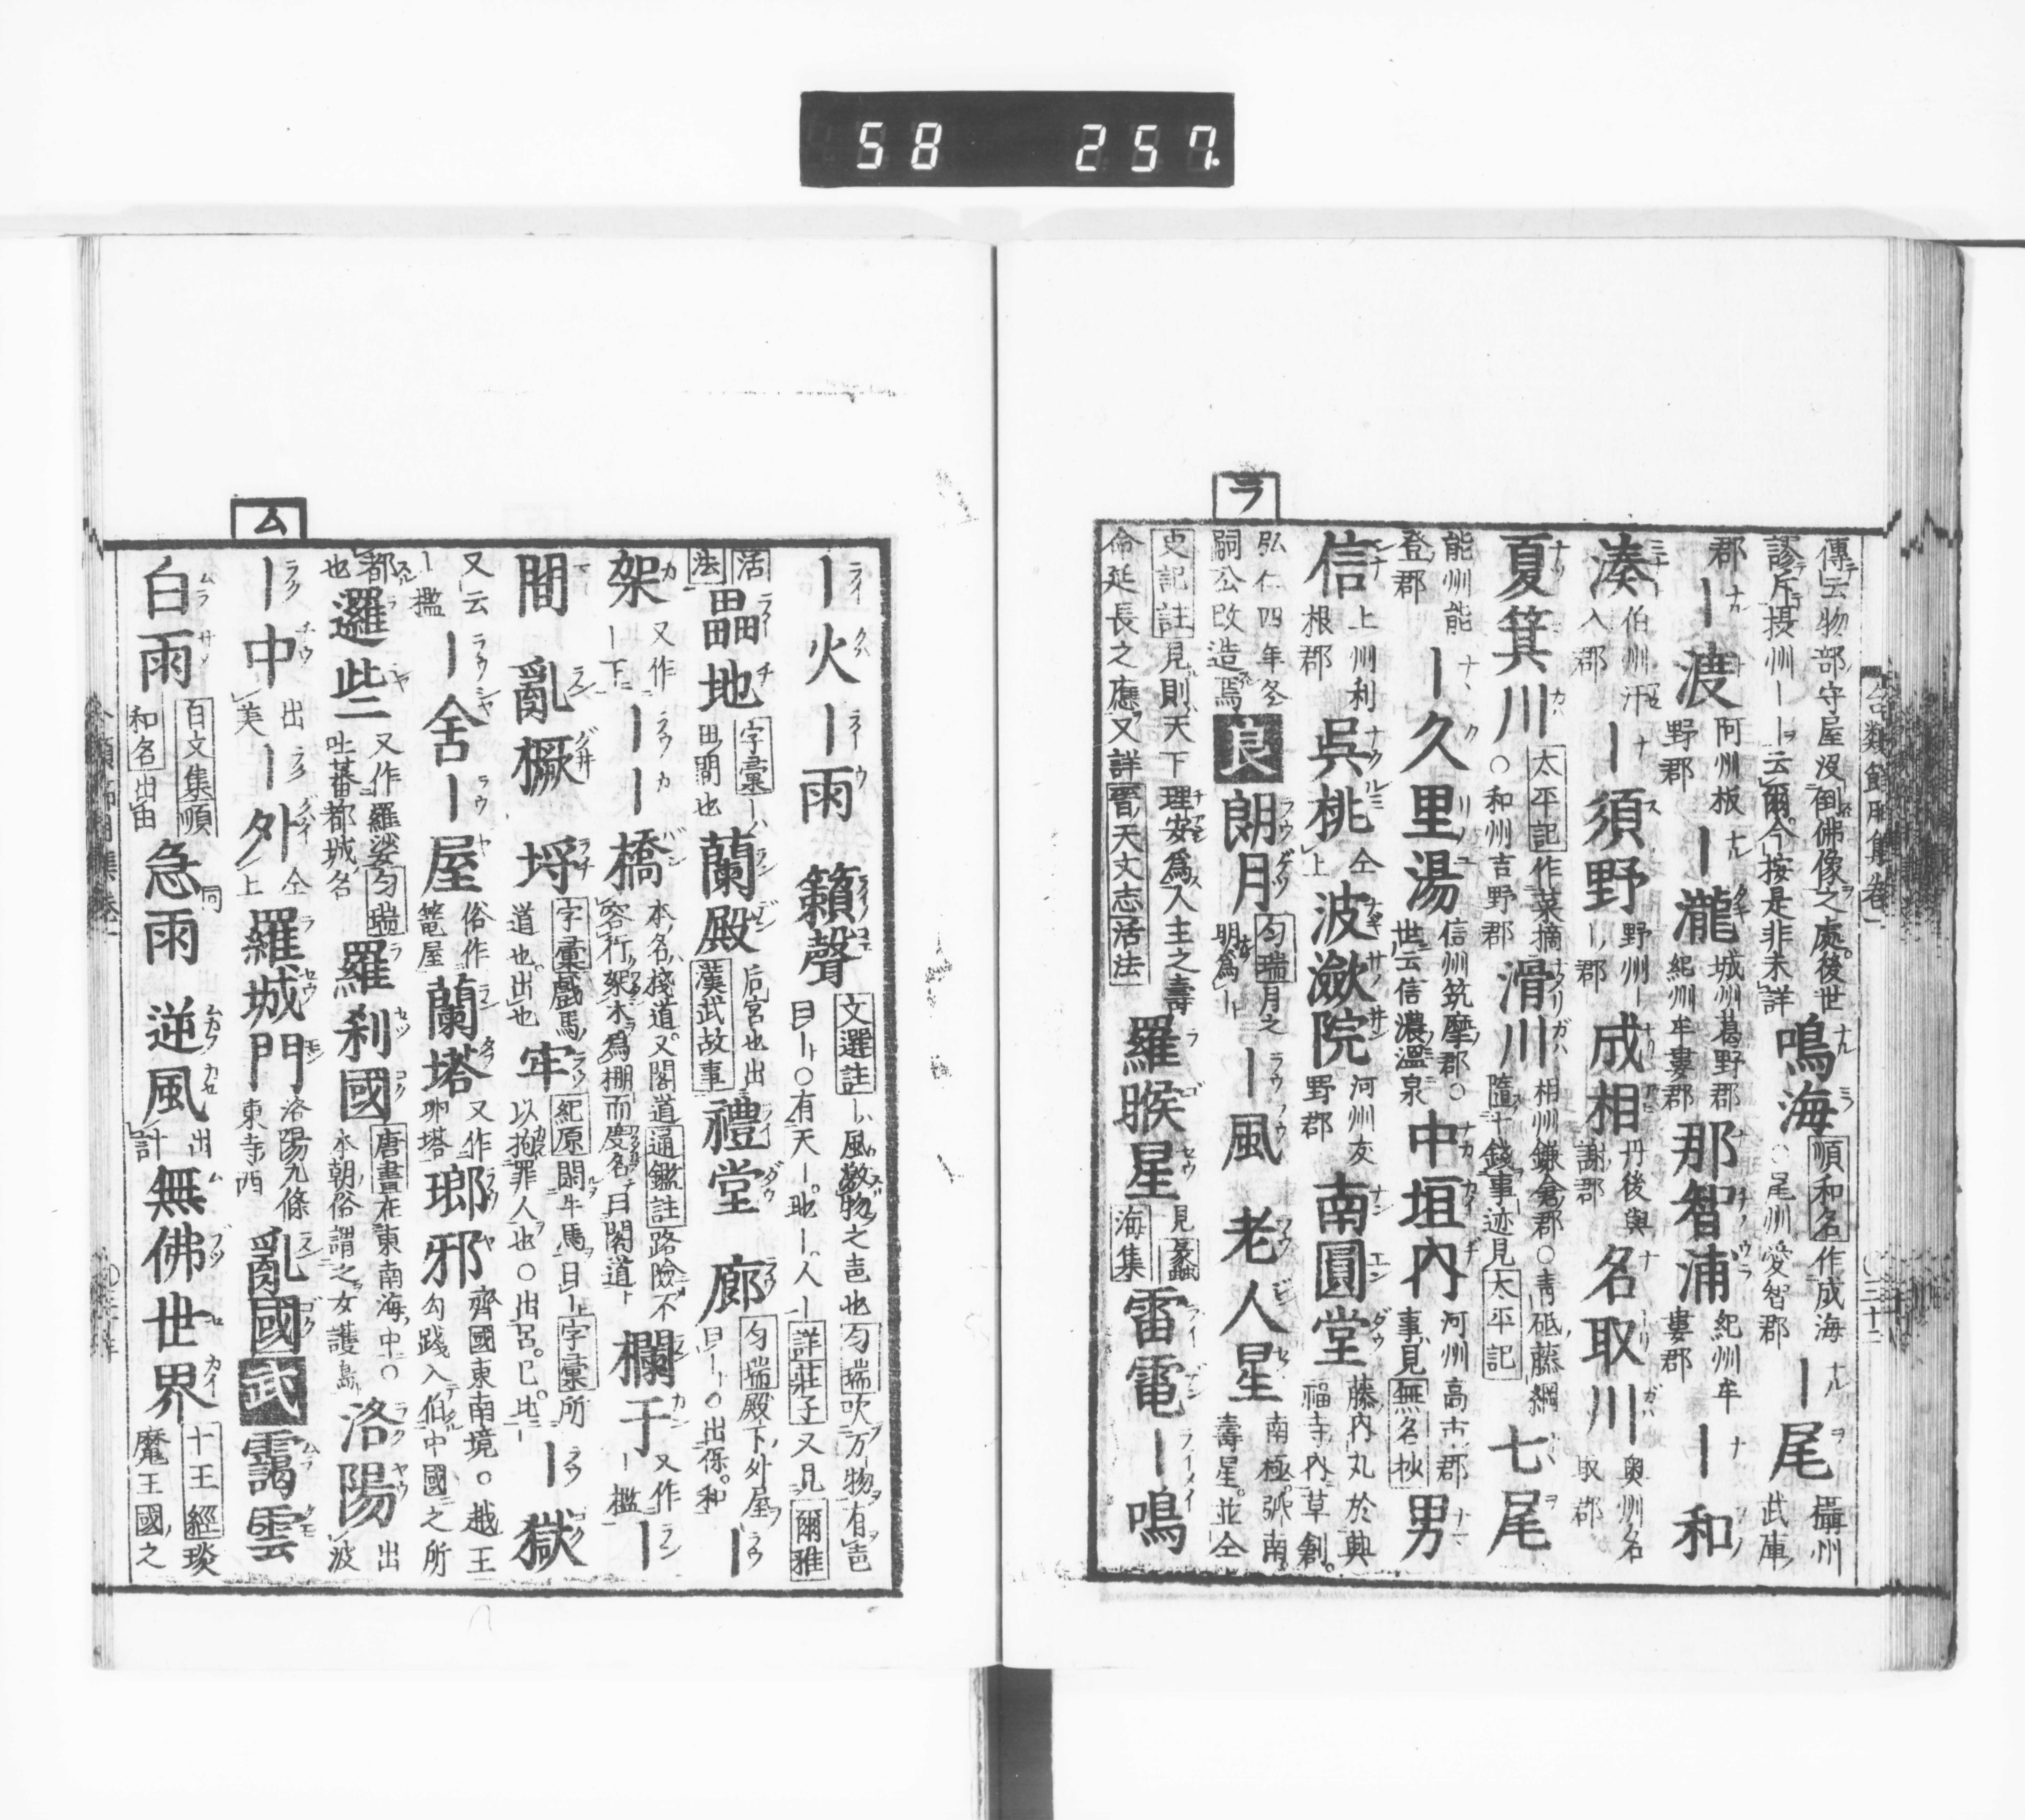 58 257
合類節用集卷一
傳云物部守屋没倒佛像之處後世
謬斥摂州ーー云爾今按是非未詳
鳴海 順和名作成海
○尾州愛智郡
ー尾 攝州
武庫
郡 ー渡 阿州板
野郡
ー瀧 城州葛野郡
紀州牟婁郡
那智浦 紀州牟
婁郡
ー和
湊 伯州汗
入郡
ー須野 野州ー
ー郡
成相 丹後與
謝郡
名取川 奥州名
取郡
夏箕川 太平記作菜摘
○和州吉野郡
滑川 相州鎌倉郡○青砥藤綱
隨十錢事迹見太平記
七尾
能州能
登郡
ー久里湯 信州筑摩郡○
世云信濃温泉
中垣内 河州高市郡
事見無名抄
男
信 上州利
根郡
呉桃 仝
上
波瀲院 河州友
野郡
南圓堂 藤内丸於興
福寺内草創
弘仁四年冬
嗣公改造焉
ラ
良
朗月 匀瑞月之
明為ー
ー風
老人星 南極弧南
壽星並仝
史記註見則天下理安為人主之壽
命延長之應又詳晋天文志活法
羅睺星 見蠡
海集
雷電
ー鳴
ー火
ー雨
籟聲 文選註ー風激物之音也匀瑞吹万物有音
曰ー○有天ー地ー人ー詳莊子又見爾雅
活
法
畾地 字彙ー
田間也
蘭殿 后宮也出
漢武故事
禮堂
廊 匀瑞殿下外屋
曰ー○出係和
ー
架 又作
ー下
ーー橋 本名棧道又閣道通鑑註路險不
容行架木為棚而度名曰閣道
欄于 又作
ー檻
ー
間
亂橛
埒 字彙戲馬
道也出也
牢 紀原閑牛馬曰ー字彙所
以拘罪人也○出呂巳比
ー獄
又云
ー檻
ー舎
ー屋 俗作
篭屋
蘭塔 又作
瑯塔
瑯邪 齊國東南境○越王
勾踐入伯中國之所
都
也
邏些 又作羅娑匀瑞
吐蕃都城名
羅刹國 唐書在東南海中○
本朝俗謂之女護島
洛陽 出
波
ー中 出
美
ー外 仝
上
羅城門 洛陽九條
東寺西
亂國
ム
武
靄雲
白雨 白文集順
和名出由
急雨 同
逆風 出
計
無佛世界 十王經琰
魔王國之